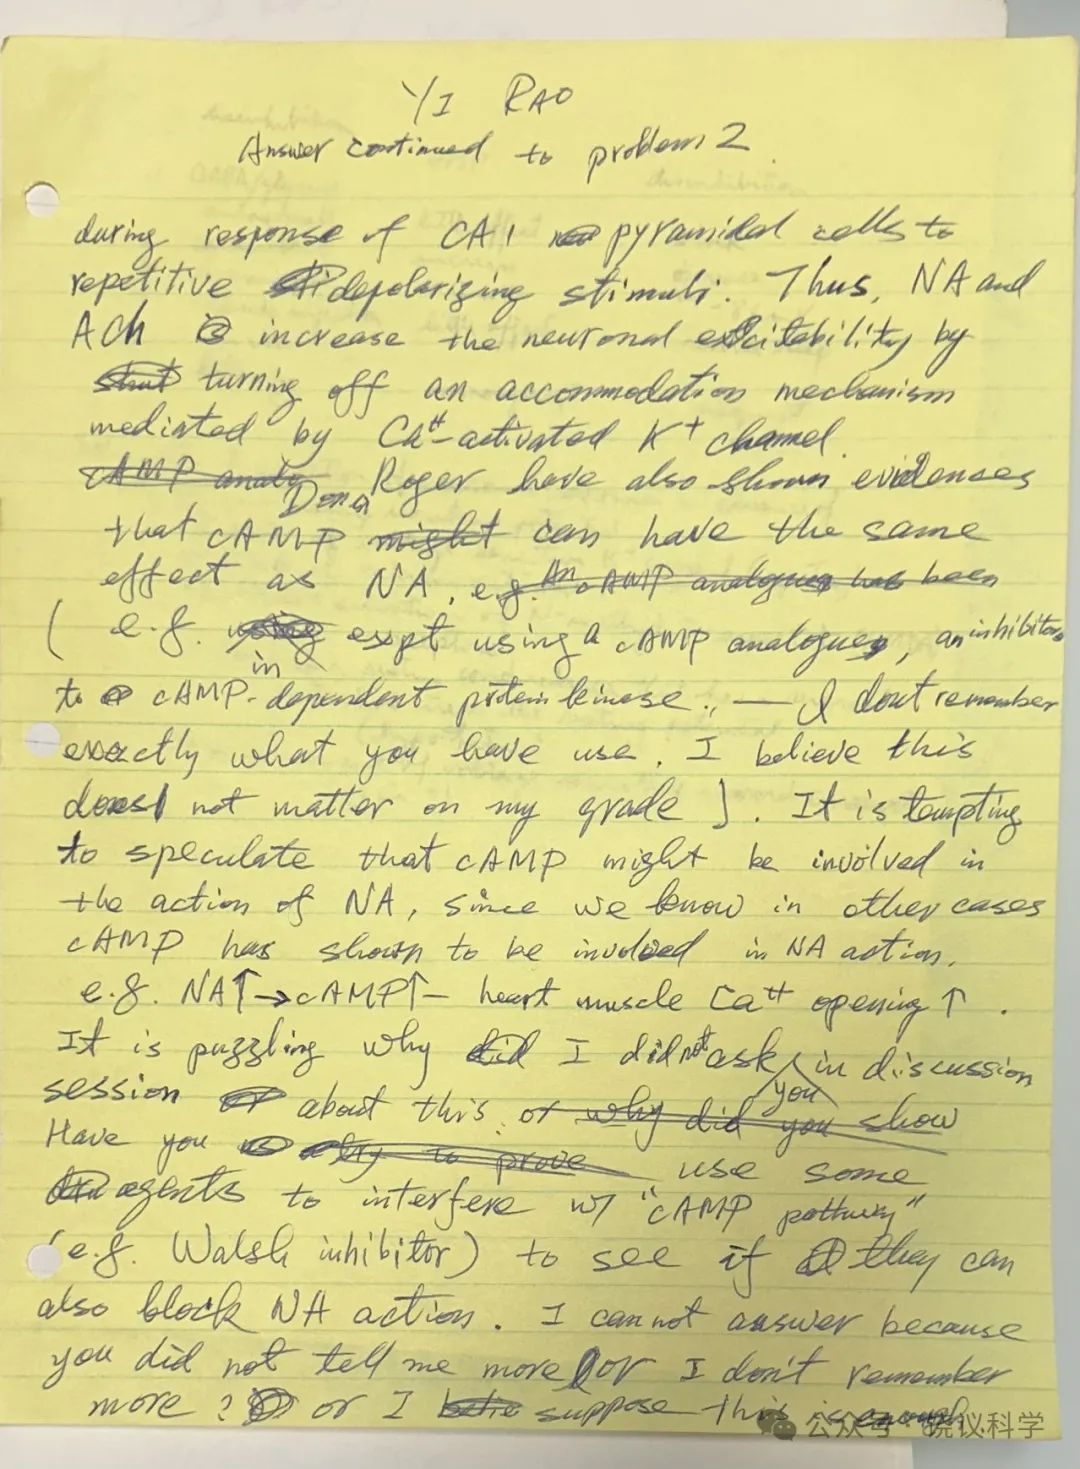 YI RAO
Answer continued to problem 2
during response of CA1 pyramidal cells to
repetitive depolarizing stimuli. Thus, NA and
ACh increase the neuronal excitability by
turning off an accommodation mechanism
mediated by Ca⁺⁺-activated K⁺ channel.
cAMP Dan Roger have also shown evidences
that cAMP might can have the same
effect as NA, e.g. An cAMP analogues has been
( e.g. expt using a cAMP analogues, an inhibitor
in
to cAMP-dependent protein kinase., — I dont remember
exactly what you have use. I believe this
does not matter on my grade ]. It is tempting
to speculate that cAMP might be involved in
the action of NA, since we know in other cases
cAMP has shown to be involved in NA action.
e.g. NA↑→cAMP↑— heart muscle Ca⁺⁺ opening ↑ .
It is puzzling why did I did not ask you in discussion
session about this. or why did you show
Have you try to prove use some
agents to interfere w/ "cAMP pathway"
(e.g. Walsh inhibitor) to see if they can
also block NA action. I cannot answer because
you did not tell me more or I don't remember
more ? or I suppose this is enough.
公众号·饶议科学